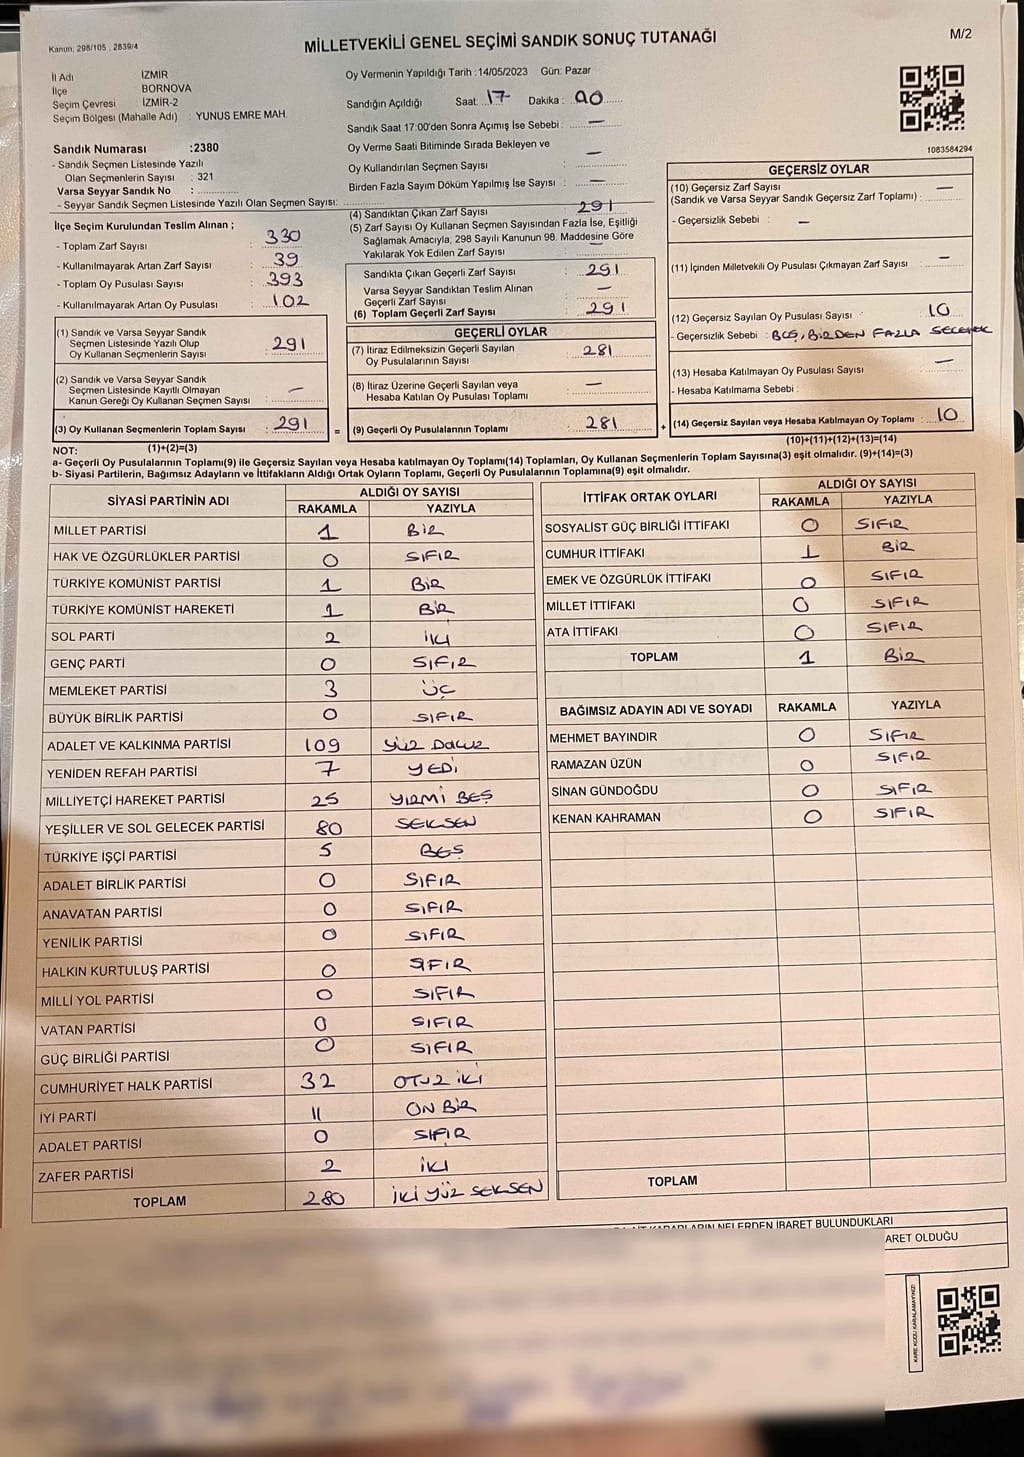 Kanun: 298/105 , 2839/4
MİLLETVEKİLİ GENEL SEÇİMİ SANDIK SONUÇ TUTANAĞI
M/2
İl Adı İZMİR
İlçe BORNOVA
Seçim Çevresi İZMİR-2
Seçim Bölgesi (Mahalle Adı) : YUNUS EMRE MAH.
Sandık Numarası :2380
- Sandık Seçmen Listesinde Yazılı
Olan Seçmenlerin Sayısı : 321
Varsa Seyyar Sandık No :
- Seyyar Sandık Seçmen Listesinde Yazılı Olan Seçmen Sayısı:
İlçe Seçim Kurulundan Teslim Alınan ;
- Toplam Zarf Sayısı : 330
- Kullanılmayarak Artan Zarf Sayısı : 39
- Toplam Oy Pusulası Sayısı : 393
- Kullanılmayarak Artan Oy Pusulası : 102
(1) Sandık ve Varsa Seyyar Sandık
Seçmen Listesinde Yazılı Olup
Oy Kullanan Seçmenlerin Sayısı : 291
(2) Sandık ve Varsa Seyyar Sandık
Seçmen Listesinde Kayıtlı Olmayan
Kanun Gereği Oy Kullanan Seçmen Sayısı : —
(3) Oy Kullanan Seçmenlerin Toplam Sayısı : 291
Oy Vermenin Yapıldığı Tarih :14/05/2023 Gün: Pazar
Sandığın Açıldığı Saat: 17 Dakika :
Sandık Saat 17:00'den Sonra Açımış İse Sebebi : —
Oy Verme Saati Bitiminde Sırada Bekleyen ve
Oy Kullandırılan Seçmen Sayısı : —
Birden Fazla Sayım Döküm Yapılmış İse Sayısı : —
(4) Sandıktan Çıkan Zarf Sayısı : 291
(5) Zarf Sayısı Oy Kullanan Seçmen Sayısından Fazla İse, Eşitliği
Sağlamak Amacıyla, 298 Sayılı Kanunun 98. Maddesine Göre
Yakılarak Yok Edilen Zarf Sayısı : —
Sandıkta Çıkan Geçerli Zarf Sayısı : 291
Varsa Seyyar Sandıktan Teslim Alınan
Geçerli Zarf Sayısı : —
(6) Toplam Geçerli Zarf Sayısı : 291
GEÇERLİ OYLAR
(7) İtiraz Edilmeksizin Geçerli Sayılan
Oy Pusulalarının Sayısı : 281
(8) İtiraz Üzerine Geçerli Sayılan veya
Hesaba Katılan Oy Pusulası Toplamı : —
= (9) Geçerli Oy Pusulalarının Toplamı : 281
1083584294
GEÇERSİZ OYLAR
(10) Geçersiz Zarf Sayısı
(Sandık ve Varsa Seyyar Sandık Geçersiz Zarf Toplamı) : —
- Geçersizlik Sebebi : —
(11) İçinden Milletvekili Oy Pusulası Çıkmayan Zarf Sayısı : —
(12) Geçersiz Sayılan Oy Pusulası Sayısı : 10
- Geçersizlik Sebebi : BOŞ, BİRDEN FAZLA SEÇENEK
(13) Hesaba Katılmayan Oy Pusulası Sayısı : —
- Hesaba Katılmama Sebebi :
+ (14) Geçersiz Sayılan veya Hesaba Katılmayan Oy Toplamı : 10
NOT: (1)+(2)=(3)
(10)+(11)+(12)+(13)=(14)
a- Geçerli Oy Pusulalarının Toplamı(9) ile Geçersiz Sayılan veya Hesaba katılmayan Oy Toplamı(14) Toplamları, Oy Kullanan Seçmenlerin Toplam Sayısına(3) eşit olmalıdır. (9)+(14)=(3)
b- Siyasi Partilerin, Bağımsız Adayların ve İttifakların Aldığı Ortak Oyların Toplamı, Geçerli Oy Pusulalarının Toplamına(9) eşit olmalıdır.
SİYASİ PARTİNİN ADI ALDIĞI OY SAYISI
RAKAMLA YAZIYLA
MİLLET PARTİSİ 1 BİR
HAK VE ÖZGÜRLÜKLER PARTİSİ 0 SIFIR
TÜRKİYE KOMÜNİST PARTİSİ 1 BİR
TÜRKİYE KOMÜNİST HAREKETİ 1 BİR
SOL PARTİ 2 İKİ
GENÇ PARTİ 0 SIFIR
MEMLEKET PARTİSİ 3 ÜÇ
BÜYÜK BİRLİK PARTİSİ 0 SIFIR
ADALET VE KALKINMA PARTİSİ 109 YÜZ DOKUZ
YENİDEN REFAH PARTİSİ 7 YEDİ
MİLLİYETÇİ HAREKET PARTİSİ 25 YİRMİ BEŞ
YEŞİLLER VE SOL GELECEK PARTİSİ 80 SEKSEN
TÜRKİYE İŞÇİ PARTİSİ 5 BEŞ
ADALET BİRLİK PARTİSİ 0 SIFIR
ANAVATAN PARTİSİ 0 SIFIR
YENİLİK PARTİSİ 0 SIFIR
HALKIN KURTULUŞ PARTİSİ 0 SIFIR
MİLLİ YOL PARTİSİ 0 SIFIR
VATAN PARTİSİ 0 SIFIR
GÜÇ BİRLİĞİ PARTİSİ 0 SIFIR
CUMHURİYET HALK PARTİSİ 32 OTUZ İKİ
İYİ PARTİ 11 ON BİR
ADALET PARTİSİ 0 SIFIR
ZAFER PARTİSİ 2 İKİ
TOPLAM 280 İKİ YÜZ SEKSEN
İTTİFAK ORTAK OYLARI ALDIĞI OY SAYISI
RAKAMLA YAZIYLA
SOSYALİST GÜÇ BİRLİĞİ İTTİFAKI 0 SIFIR
CUMHUR İTTİFAKI 1 BİR
EMEK VE ÖZGÜRLÜK İTTİFAKI 0 SIFIR
MİLLET İTTİFAKI 0 SIFIR
ATA İTTİFAKI 0 SIFIR
TOPLAM 1 BİR
BAĞIMSIZ ADAYIN ADI VE SOYADI RAKAMLA YAZIYLA
MEHMET BAYINDIR 0 SIFIR
RAMAZAN ÜZÜN 0 SIFIR
SİNAN GÜNDOĞDU 0 SIFIR
KENAN KAHRAMAN 0 SIFIR
TOPLAM
KARARLARIN NELERDEN İBARET BULUNDUKLARI
ARET OLDUĞU
KARE KODU KARALAMAYINIZ!